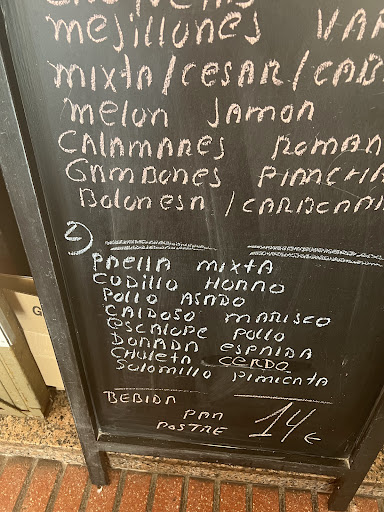 mejillones
mixta/cesar/
melon Jamon
Calamares
Gambones
Bolonesa /
2
paella mixta
Codillo Horno
Pollo Asado
Caldoso marisco
escalope pollo
Dorada espalda
Chuleta cerdo
Solomillo pimienta
BEBIDA
pan
postre 14€